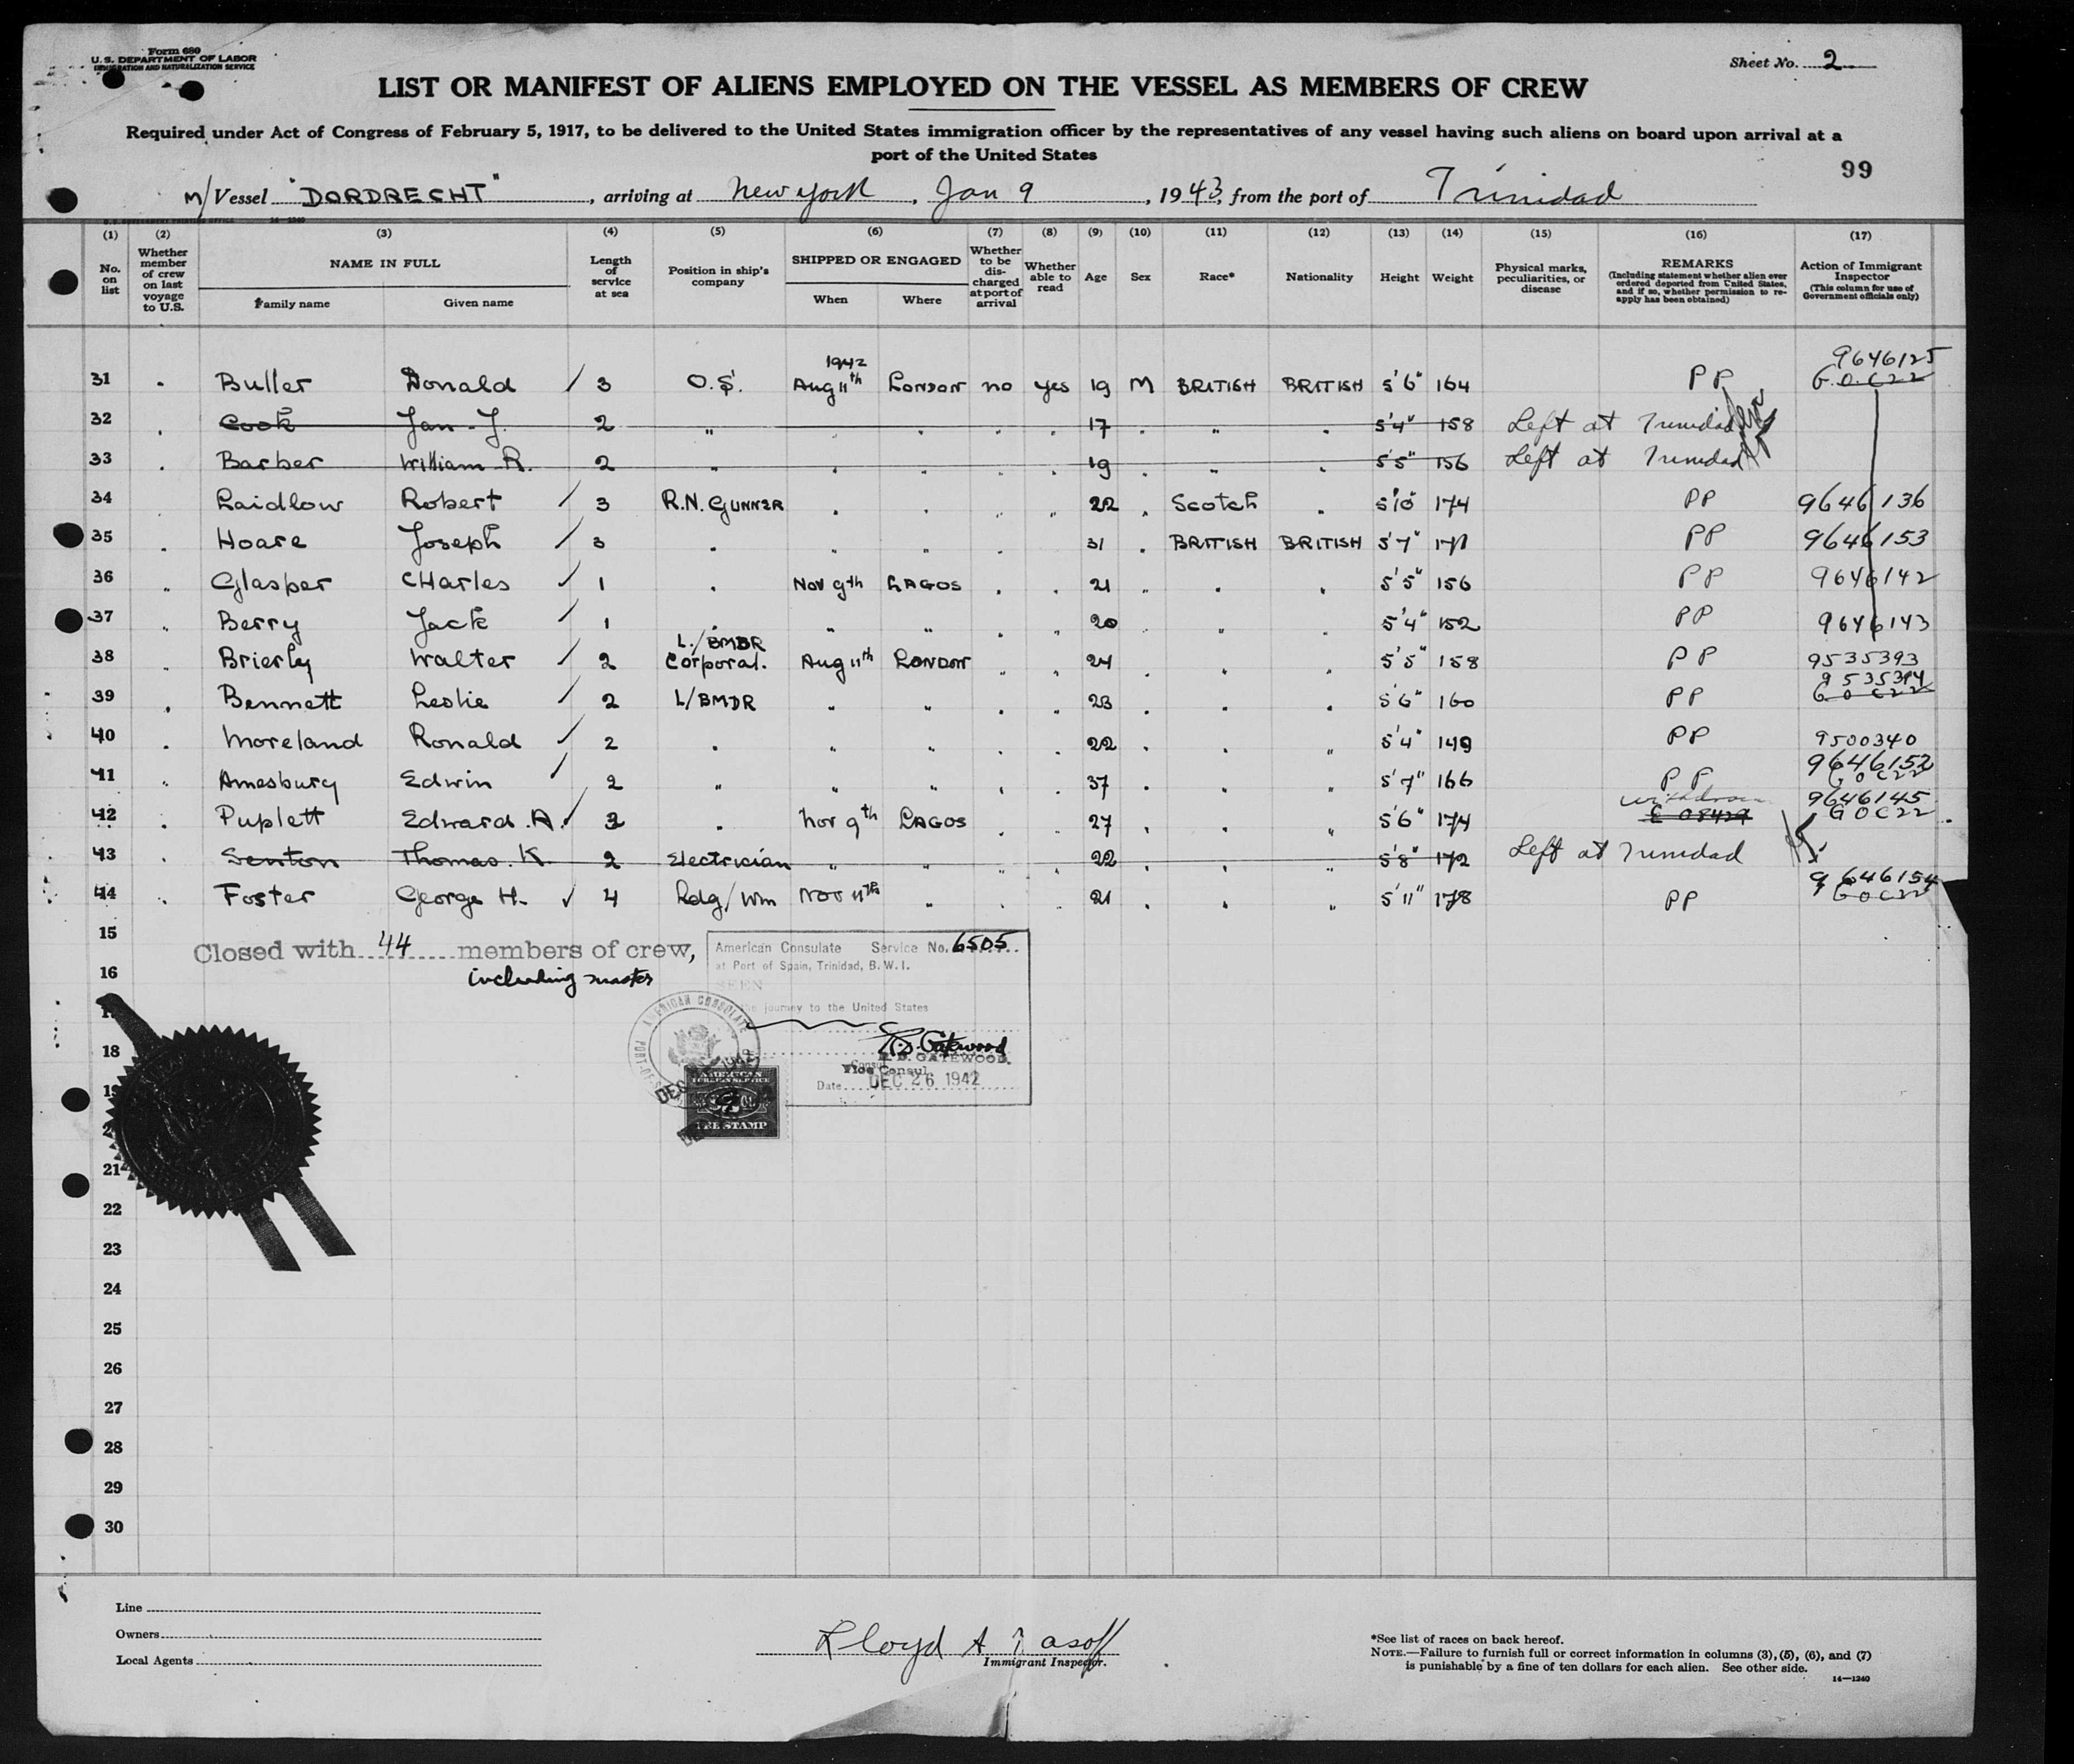 Form 680
U. S. DEPARTMENT OF LABOR
IMMIGRATION AND NATURALIZATION SERVICE
Sheet No. 2
LIST OR MANIFEST OF ALIENS EMPLOYED ON THE VESSEL AS MEMBERS OF CREW
Required under Act of Congress of February 5, 1917, to be delivered to the United States immigration officer by the representatives of any vessel having such aliens on board upon arrival at a
port of the United States
99
M/Vessel "DORDRECHT", arriving at New York, Jan 9, 1943, from the port of Trinidad
(1) (2) (3) (4) (5) (6) (7) (8) (9) (10) (11) (12) (13) (14) (15) (16) (17)
No. on list
Whether member of crew on last voyage to U.S.
NAME IN FULL
Family name
Given name
Length of service at sea
Position in ship's company
SHIPPED OR ENGAGED
When
Where
Whether to be discharged at port of arrival
Whether able to read
Age
Sex
Race*
Nationality
Height
Weight
Physical marks, peculiarities, or disease
REMARKS
(Including statement whether alien ever ordered deported from United States, and if so, whether permission to reapply has been obtained)
Action of Immigrant Inspector
(This column for use of Government officials only)
1942 9646125
31 . Buller Donald / 3 O.S. Aug 11th LONDON no yes 19 M BRITISH BRITISH 5'6" 164 PP G.O.C22
32 . Cook Jan J. 2 " . . . . 17 . " . 5'4" 158 Left at Trinidad
33 . Barber William R. 2 " . " . . 19 . " . 5'5" 156 Left at Trinidad
34 . Laidlow Robert / 3 R.N. GUNNER . . . " 22 . Scotch " 5'10" 174 PP 9646136
35 . Hoare Joseph / 3 . " " . " 31 . BRITISH BRITISH 5'7" 171 PP 9646153
36 " Glasper CHarles / 1 . Nov 9th LAGOS . . 21 " . . 5'5" 156 PP 9646142
37 " Berry Jack / 1 . " " . " 20 . " . 5'4" 152 PP 9646143
L./BMDR
38 Brierly Walter / 2 Corporal. Aug 11th LONDON " . 24 . " " 5'5" 158 PP 9535393
9535394
39 . Bennett Leslie / 2 L/BMDR " " . " 23 . . . 5'6" 160 PP G O C22
40 . Moreland Ronald / 2 . " " . " 22 . . " 5'4" 149 PP 9500340
9646152
41 " Amesbury Edwin / 2 " " " . . 37 . . " 5'7" 166 PP G O C22
withdrawn 9646145
42 . Puplett Edward. A. / 3 . Nov 9th LAGOS . . 27 . . " 5'6" 174 GOC22
43 . Senton Thomas. K. 2 Electrician " " " . 22 . . " 5'8" 172 Left at Trinidad
9646154
44 . Foster George H. / 4 Ldg/Wm Nov 11th " . . 21 . . " 5'11" 178 PP GOC22
15
Closed with 44 members of crew,
including master
American Consulate Service No. 6505
at Port of Spain, Trinidad, B.W.I.
SEEN
journey to the United States
AMERICAN CONSULATE
R.D. Gatewood
R. D. GATEWOOD.
Vice Consul
Date DEC 26 1942
AMERICAN
FOREIGN SERVICE
FEE STAMP
16
18
21
22
23
24
25
26
27
28
29
30
Line
Owners
Local Agents
Lloyd A
Immigrant Inspector.
*See list of races on back hereof.
NOTE.—Failure to furnish full or correct information in columns (3), (5), (6), and (7)
is punishable by a fine of ten dollars for each alien. See other side.
14—1240